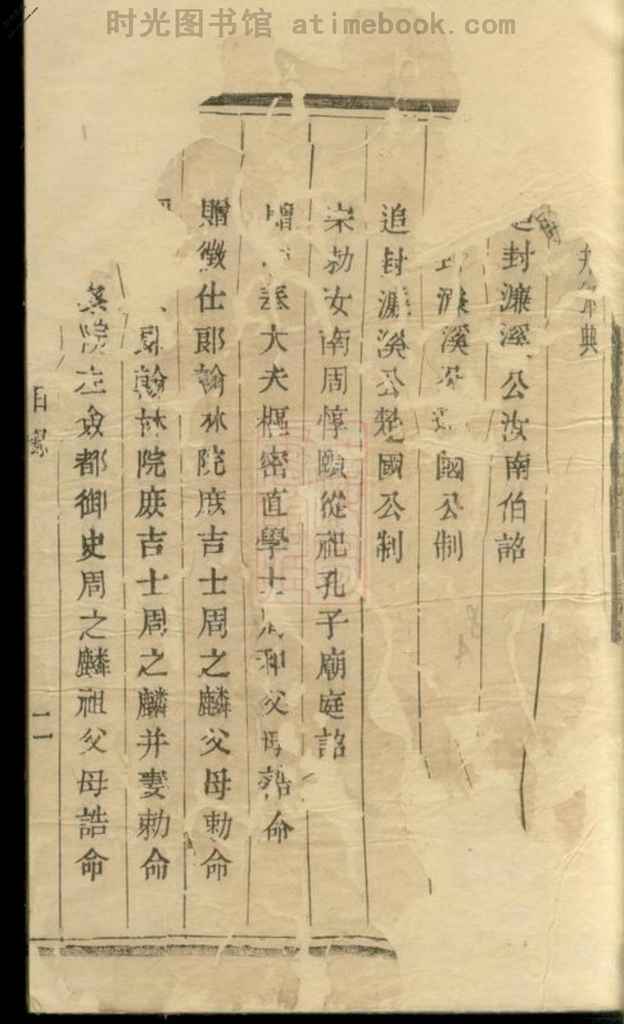 时光图书馆 atimebook.com
典
封濂溪公汝南伯詔
濂溪 國公制
追封濂溪公楚國公制
宋勅汝南周惇頤從祀孔子廟庭詔
大夫樞密直學士 父母誥命
贈徵仕郎翰林院庶吉士周之麟父母勅命
翰林院庶吉士周之麟并妻勅命
院左僉都御史周之麟祖父母誥命
目錄
二